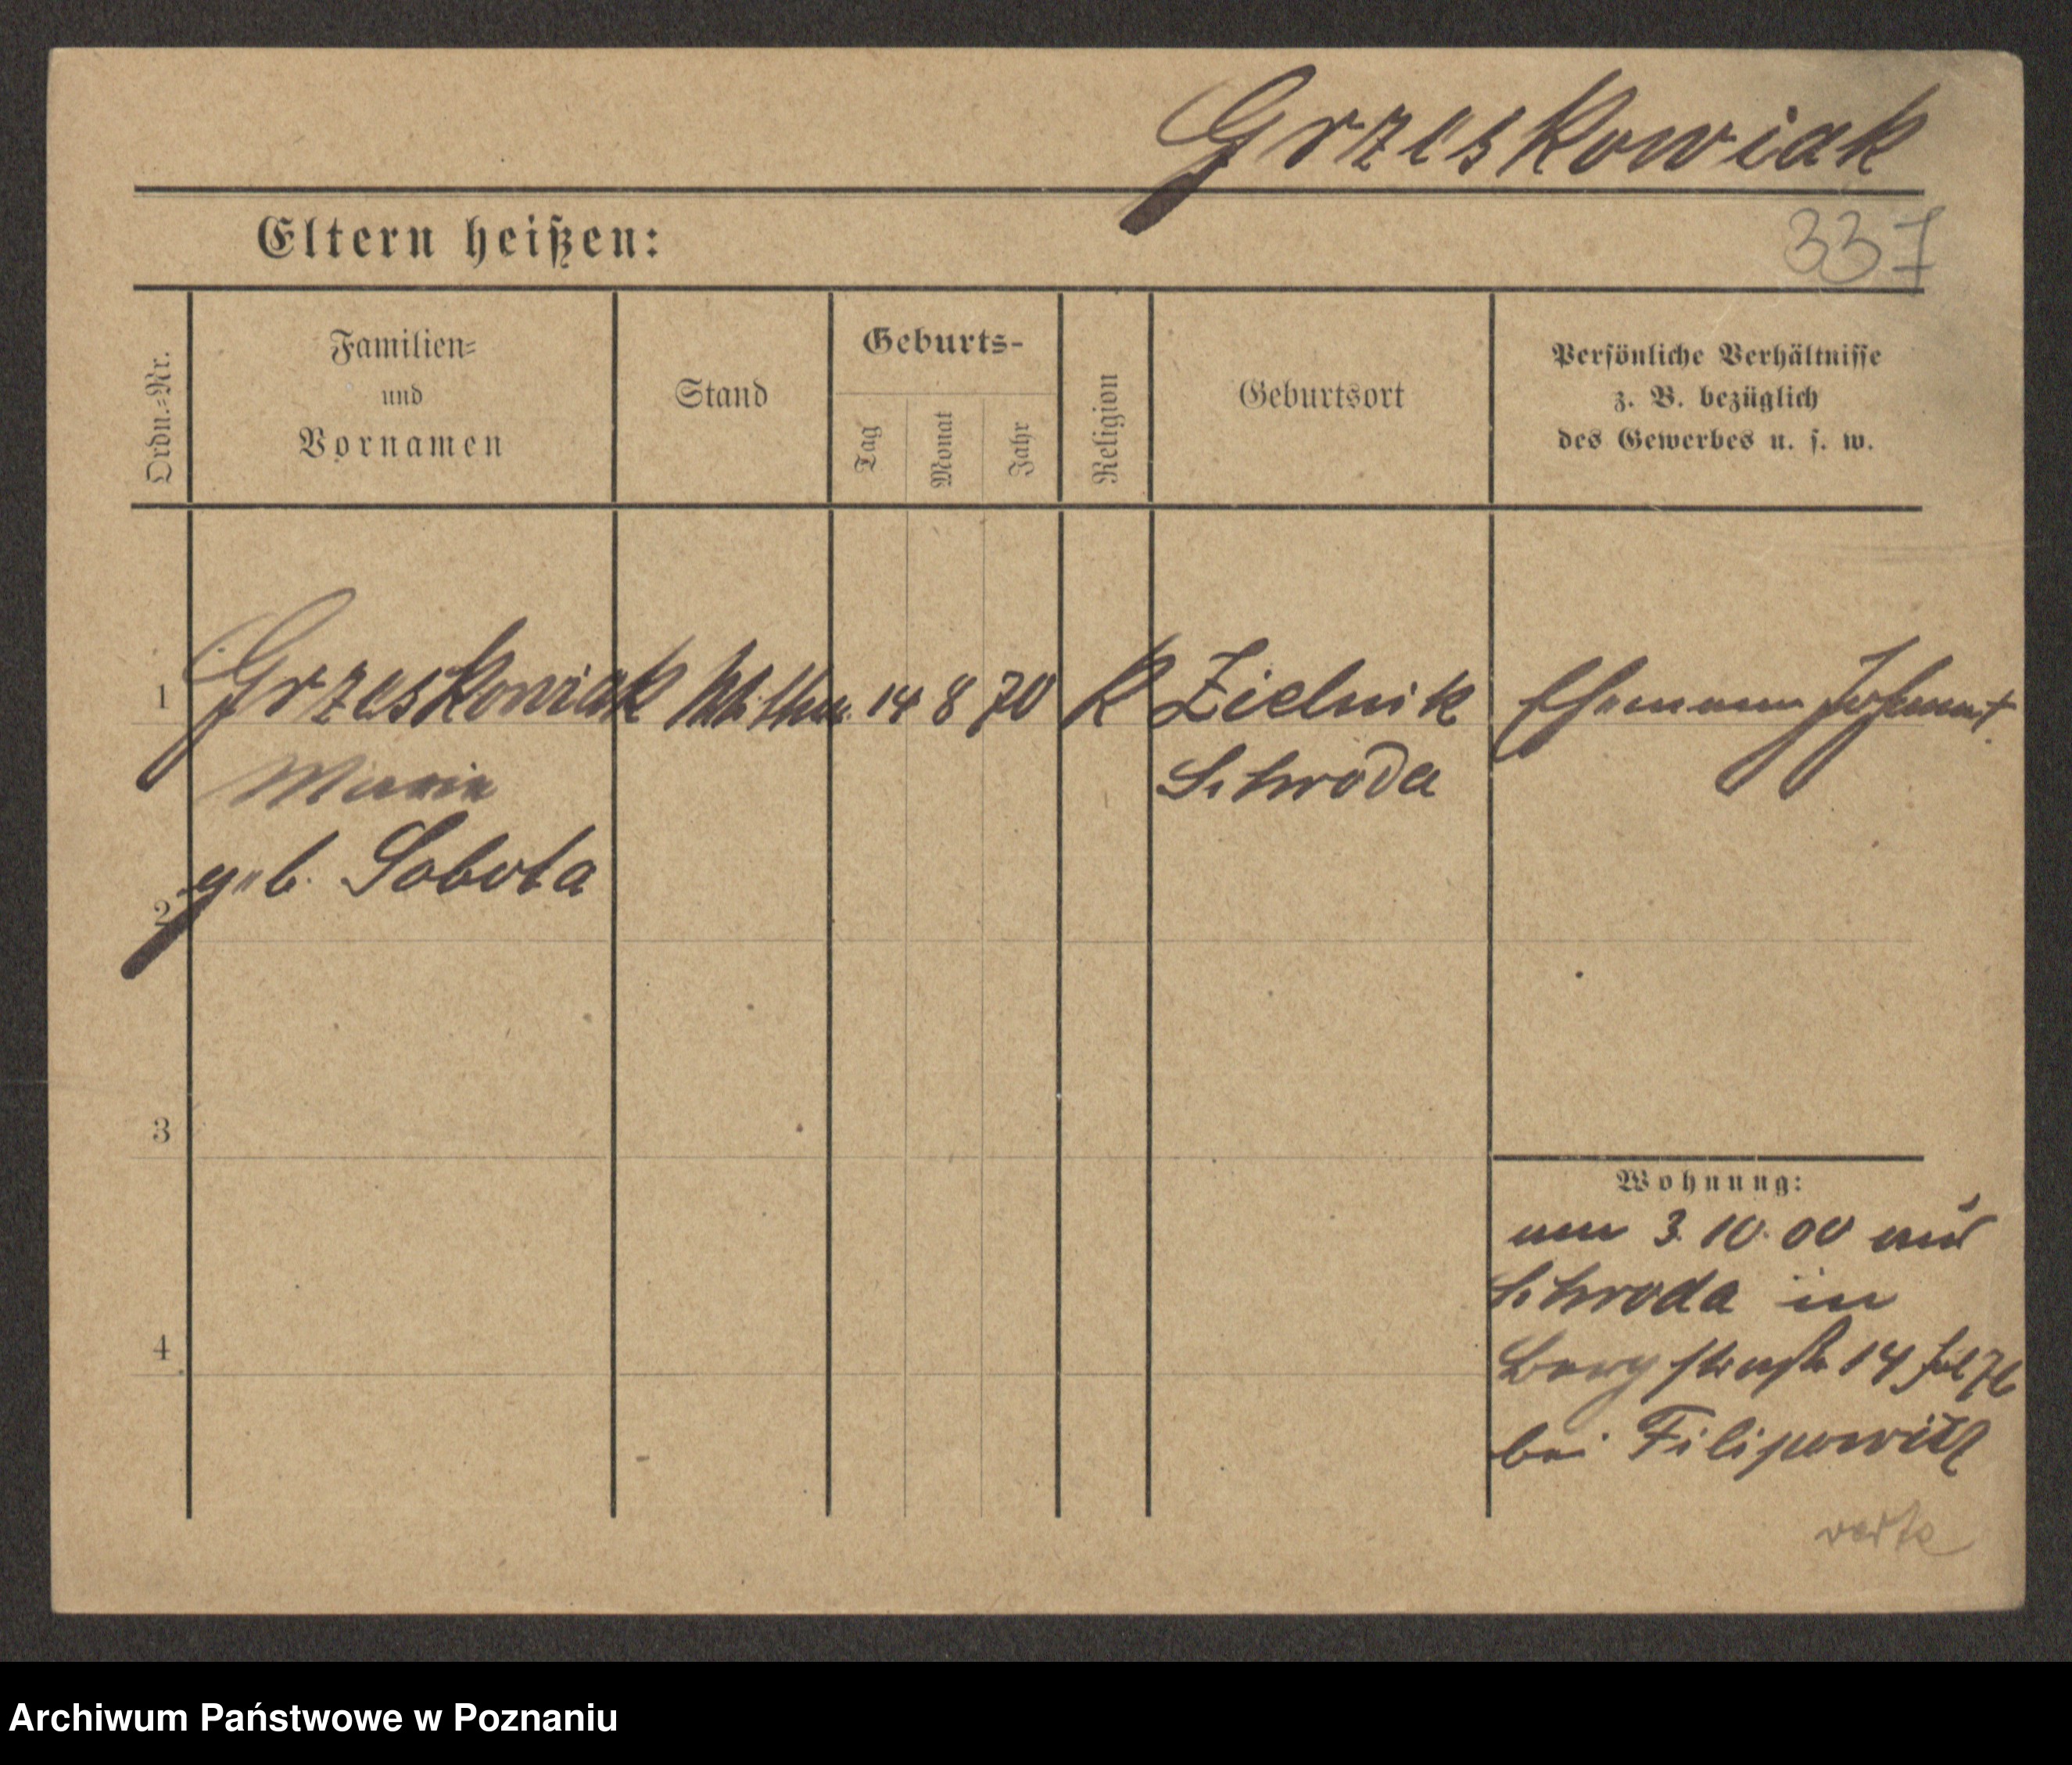 Grzeskowiak
Eltern heißen:
337
Ordn.=Nr.
Familien=
und
Vornamen
Stand
Geburts-
Tag
Monat
Jahr
Religion
Geburtsort
Persönliche Verhältnisse
z. B. bezüglich
des Gewerbes u. s. w.
1 Grzeskowiak 14 8 70 K Zielnik Ehemann Johann †
Maria Schroda
geb. Sobota
2
3
4
Wohnung:
am 3. 10. 00 aus
Schroda in
Bergstraße 14
bei Filipowitz
verte
Archiwum Państwowe w Poznaniu